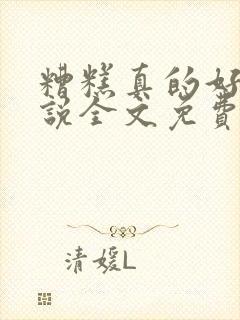 糟糕真的好
說全文免費
清媛L